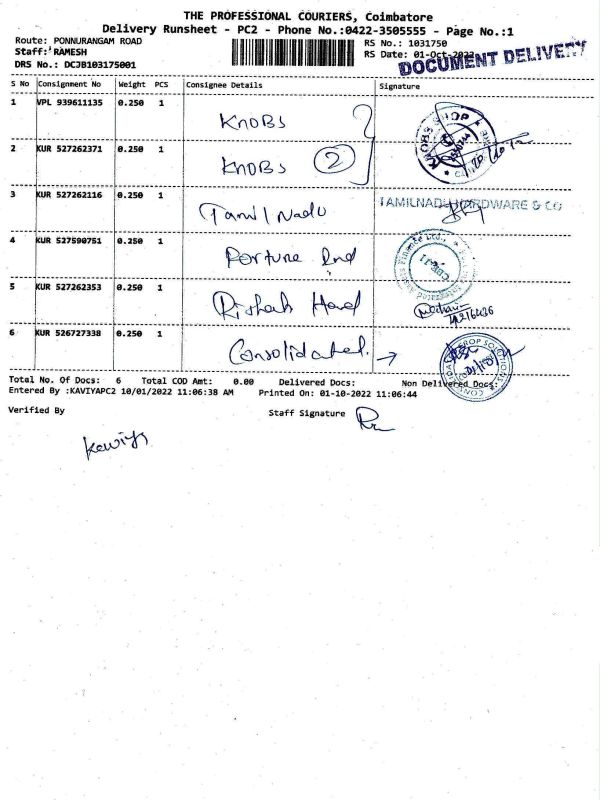 THE PROFESSIONAL COURIERS, Coimbatore
Delivery Runsheet - PC2 - Phone No.:0422-3505555 - Page No.:1
Route: PONNURANGAM ROAD
Staff: RAMESH
DRS No.: DCJB103175001
RS No.: 1031750
RS Date: 01-Oct-2022
DOCUMENT DELIVERY
S No Consignment No Weight PCS Consignee Details Signature
1 VPL 939611135 0.250 1 KNOBS
KNOBS SHOP
2 KUR 527262371 0.250 1 KNOBS 2
3 KUR 527262116 0.250 1 Tamil Nadu TAMILNADU HARDWARE & CO
4 KUR 527590751 0.250 1 Fortune Ind
5 KUR 527262353 0.250 1 Rishab Hard
6 KUR 526727338 0.250 1 Consolidated. →
CROP SOLUTIONS
Total No. Of Docs: 6 Total COD Amt: 0.00 Delivered Docs: Non Delivered Docs:
Entered By :KAVIYAPC2 10/01/2022 11:06:38 AM Printed On: 01-10-2022 11:06:44
Verified By Staff Signature
Kaviya